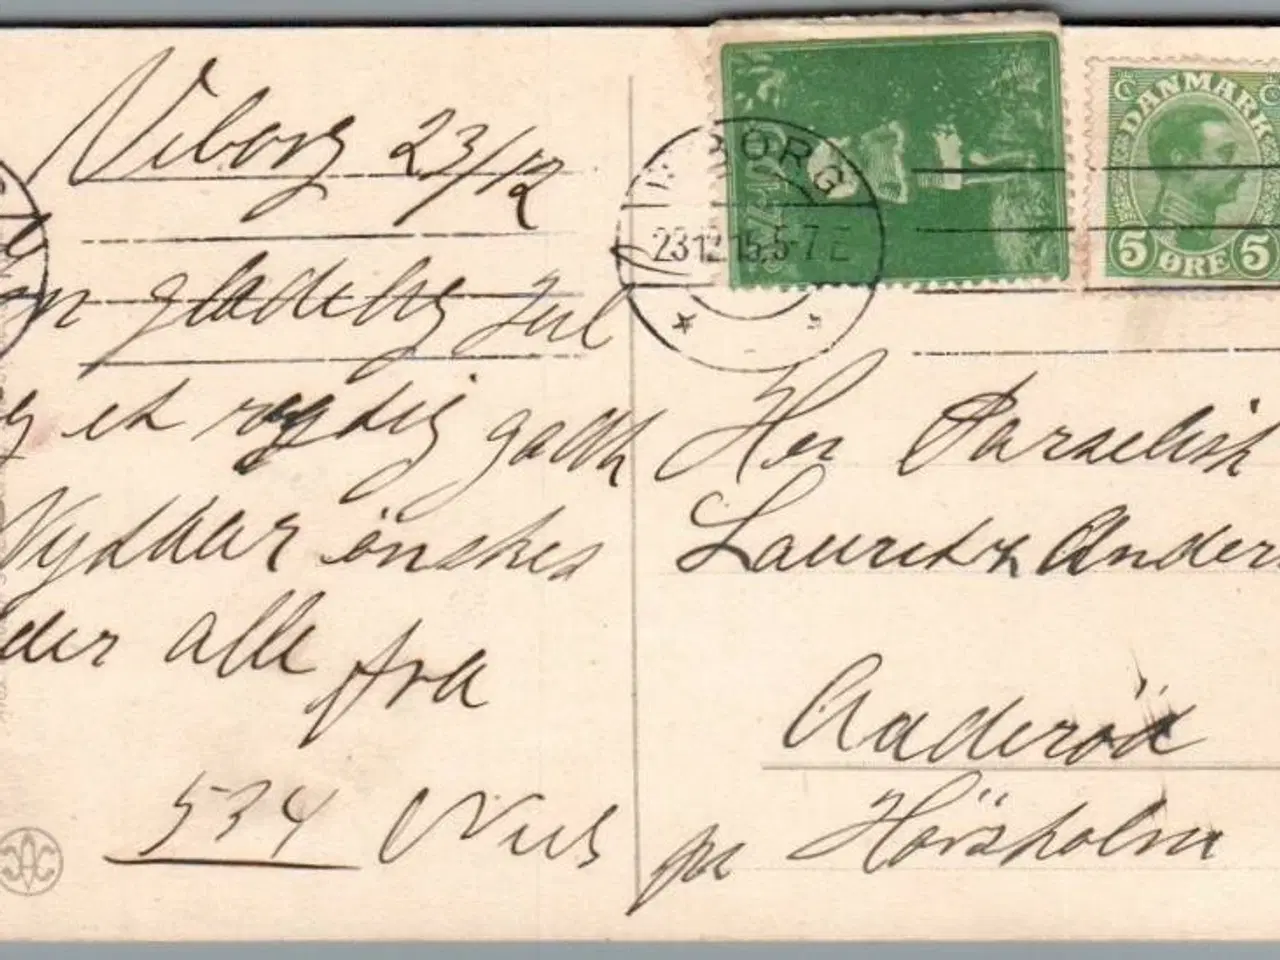 Viborg 23/12
en glædelig Jul
og et rigtig godt
Nydaar önskes
der alle fra
534 Niels
BORG
23.12.15. 5-7 E
DANMARK
5 ØRE 5
Her Parselist
Lauritz Ander
Aaderöd
pr Hörsholm